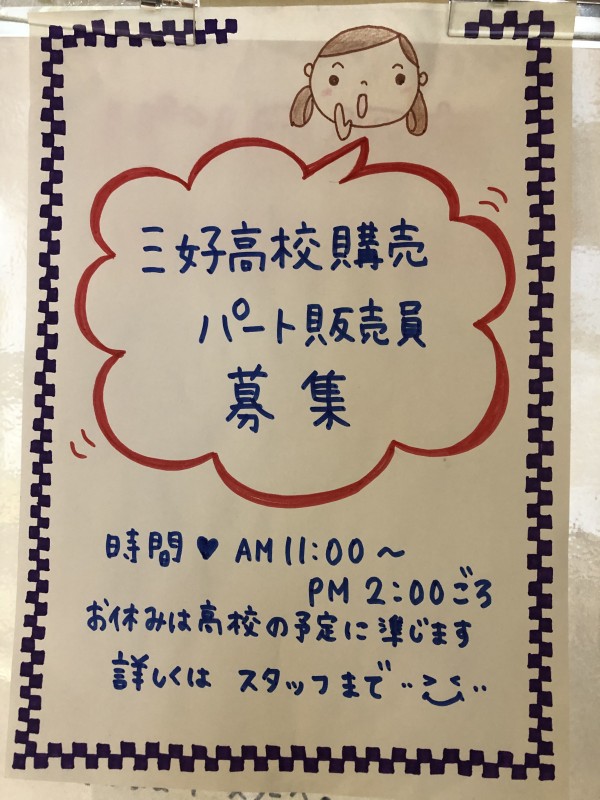 三好高校購売
パート販売員
募集
時間♥AM11:00~
PM2:00ごろ
お休みは高校の予定に準じます
詳しくは スタッフまで